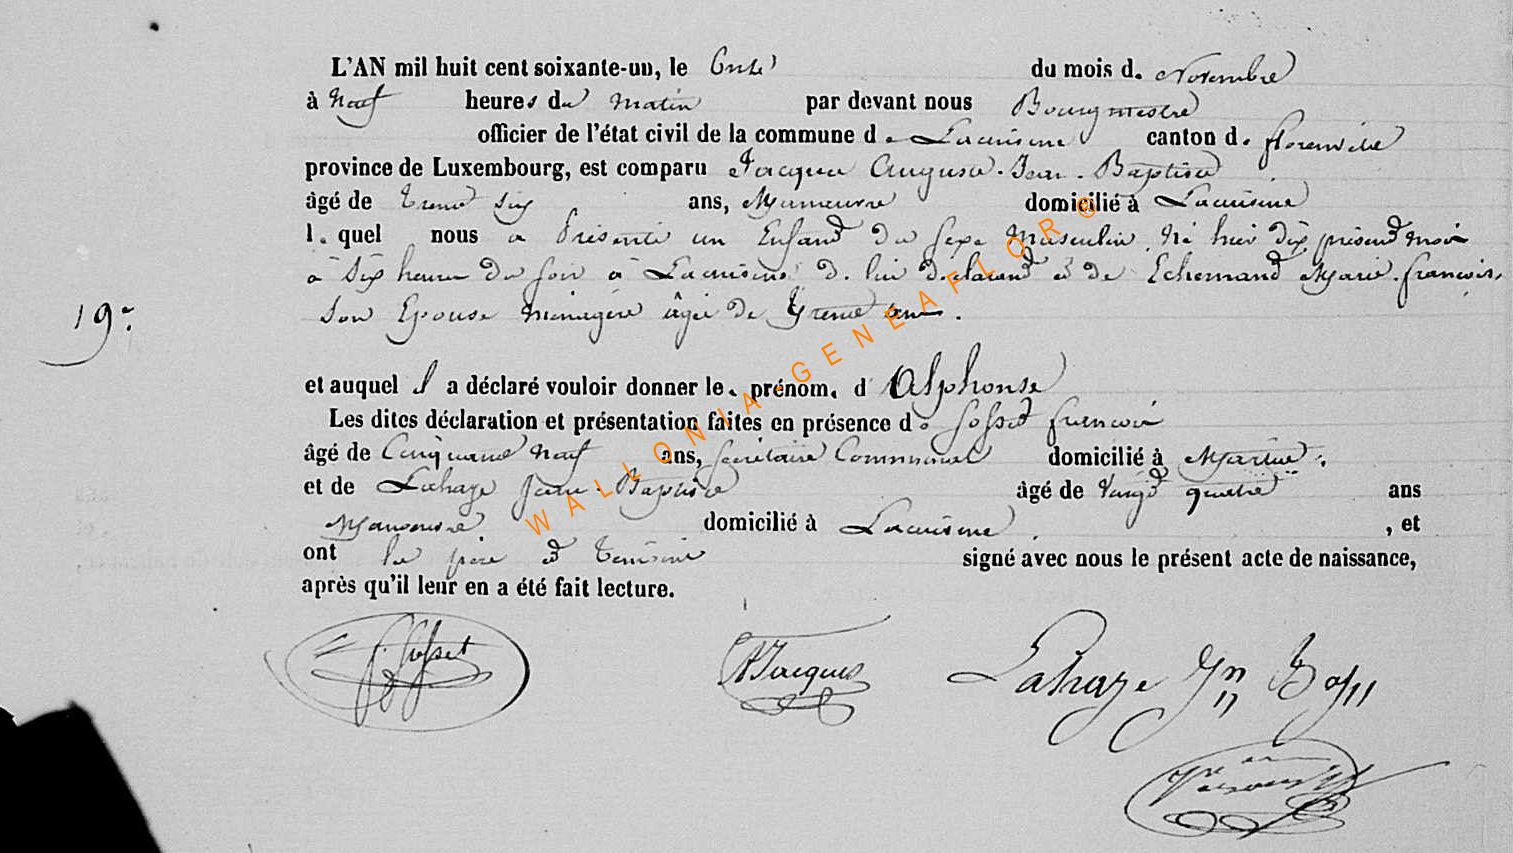 L'AN mil huit cent soixante-un, le onze du mois d. Novembre
à Neuf heures du matin par devant nous Bourgmestre
officier de l'état civil de la commune d e Lacuisine canton d. florenville
province de Luxembourg, est comparu Jacques Auguste Jean Baptiste
âgé de trente six ans, Manoeuvre domicilié à Lacuisine
l. quel nous a Présenté un Enfant du sexe Masculin, Né hier dix présent mois
à Six heures du soir à Lacuisine de lui déclarant et de Echemand Marie françoise
son Epouse Ménagère âgée de Trente ans.
19e
et auquel il a déclaré vouloir donner le. prénom. d' Alphonse
Les dites déclaration et présentation faites en présence de Gosset françois
âgé de Cinquante Neuf ans, Secrétaire Communal domicilié à Martué
et de Lahaye Jean-Baptiste âgé de Vingt quatre ans
Manoeuvre domicilié à Lacuisine , et
ont le père et témoins signé avec nous le présent acte de naissance,
après qu'il leur en a été fait lecture.
Gosset AJacques Lahaye Jn Bap
WALLONIA-GENEAFLOR ©